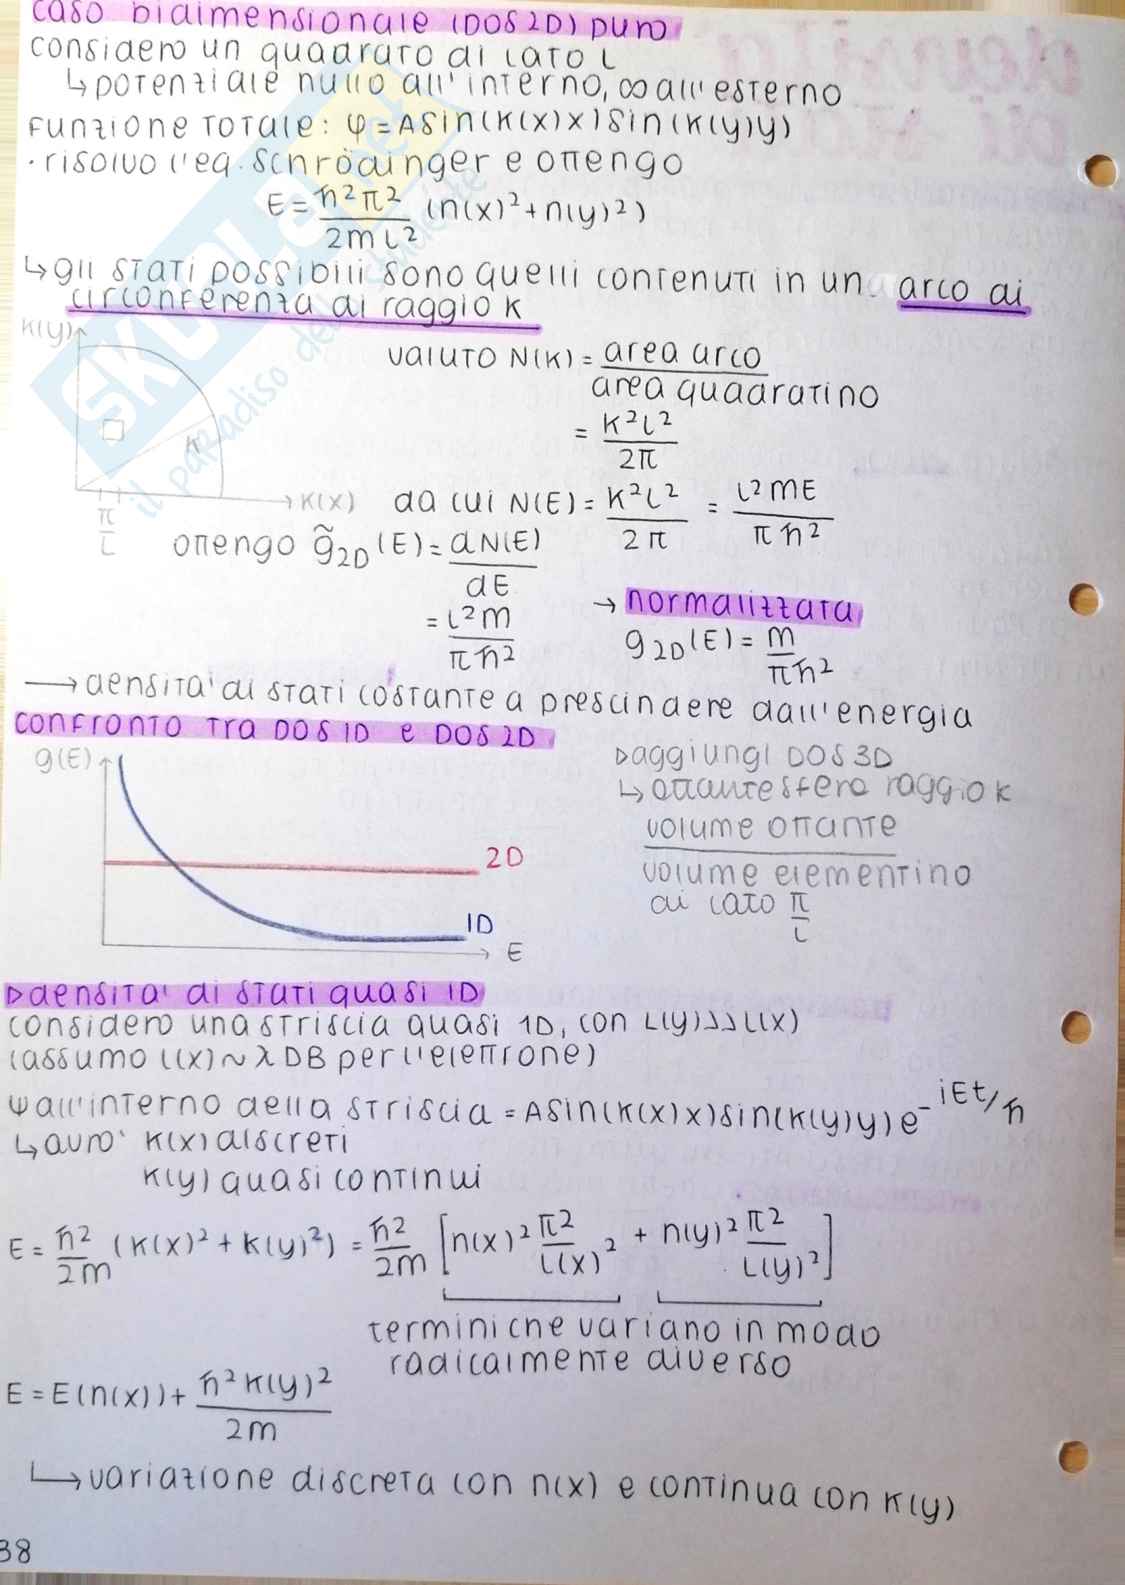 caso bidimensionale (DOS2D) puro
considero un quadrato di lato L
↳ potenziale nullo all'interno, ∞ all'esterno
funzione totale: φ = A sin(k(x)x) sin(k(y)y)
· risolvo l'eq. schrödinger e ottengo
E = ħ²π²/2mL² (n(x)² + n(y)²)
↳ gli stati possibili sono quelli contenuti in un arco di
circonferenza di raggio k
k(y)
valuto N(k) = area arco / area quadratino
= k²L²/2π
k
k(x)
π/L
da cui N(E) = k²L²/2π = L²mE/πħ²
ottengo g̃2D(E) = dN(E)/dE
= L²m/πħ²
→ normalizzata
g2D(E) = m/πħ²
→ densita' di stati costante a prescindere dall'energia
confronto tra DOS 1D e DOS 2D
g(E)
2D
1D
E
▷ aggiungi DOS 3D
↳ ottante sfera raggio k
volume ottante / volume elementino
di lato π/L
▷ densita' di stati quasi 1D
considero una striscia quasi 1D, con L(y)>>L(x)
(assumo L(x) ~ λ DB per l'elettrone)
ψ all'interno della striscia = A sin(k(x)x) sin(k(y)y) e^-iEt/ħ
↳ avro' k(x) discreti
k(y) quasi continui
E = ħ²/2m (k(x)² + k(y)²) = ħ²/2m [n(x)² π²/L(x)² + n(y)² π²/L(y)²]
termini che variano in modo
radicalmente diverso
E = E(n(x)) + ħ²k(y)²/2m
↳ variazione discreta con n(x) e continua con k(y)
38
SKUOLA.net
il paradiso dello studente